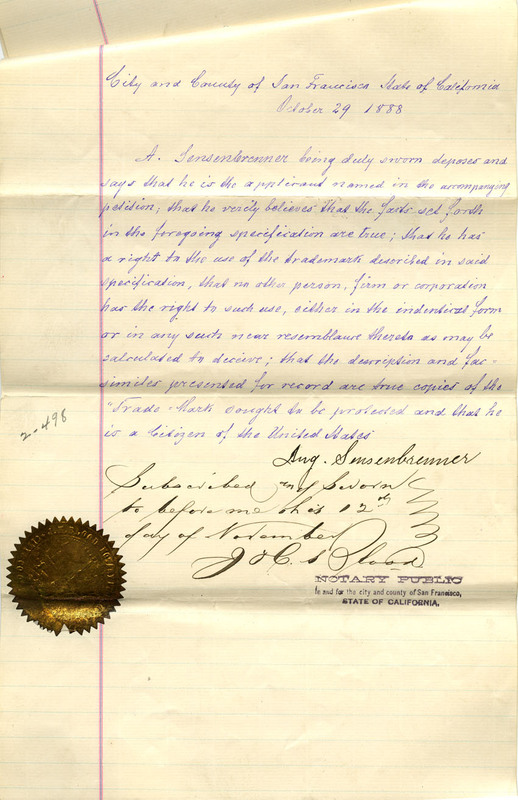 City and County of San Francisco State of California
October 29 1888
A. Sensenbrenner being duly sworn deposes and
says that he is the applicant named in the accompanying
petition; that he verily believes that the facts set forth
in the foregoing specification are true; that he has
a right to the use of the trademark described in said
specification, that no other person, firm or corporation
has the right to such use, either in the indentical form
or in any such near resemblance thereto as may be
calculated to deceive; that the description and fac-
similes presented for record are true copies of the
"Trade-Mark sought to be protected and that he
is a Citizen of the United States
2-498
Aug. Sensenbrenner
Subscribed and Sworn
to before me this 12th
day of November
NOTARY PUBLIC
In and for the city and county of San Francisco,
STATE OF CALIFORNIA.